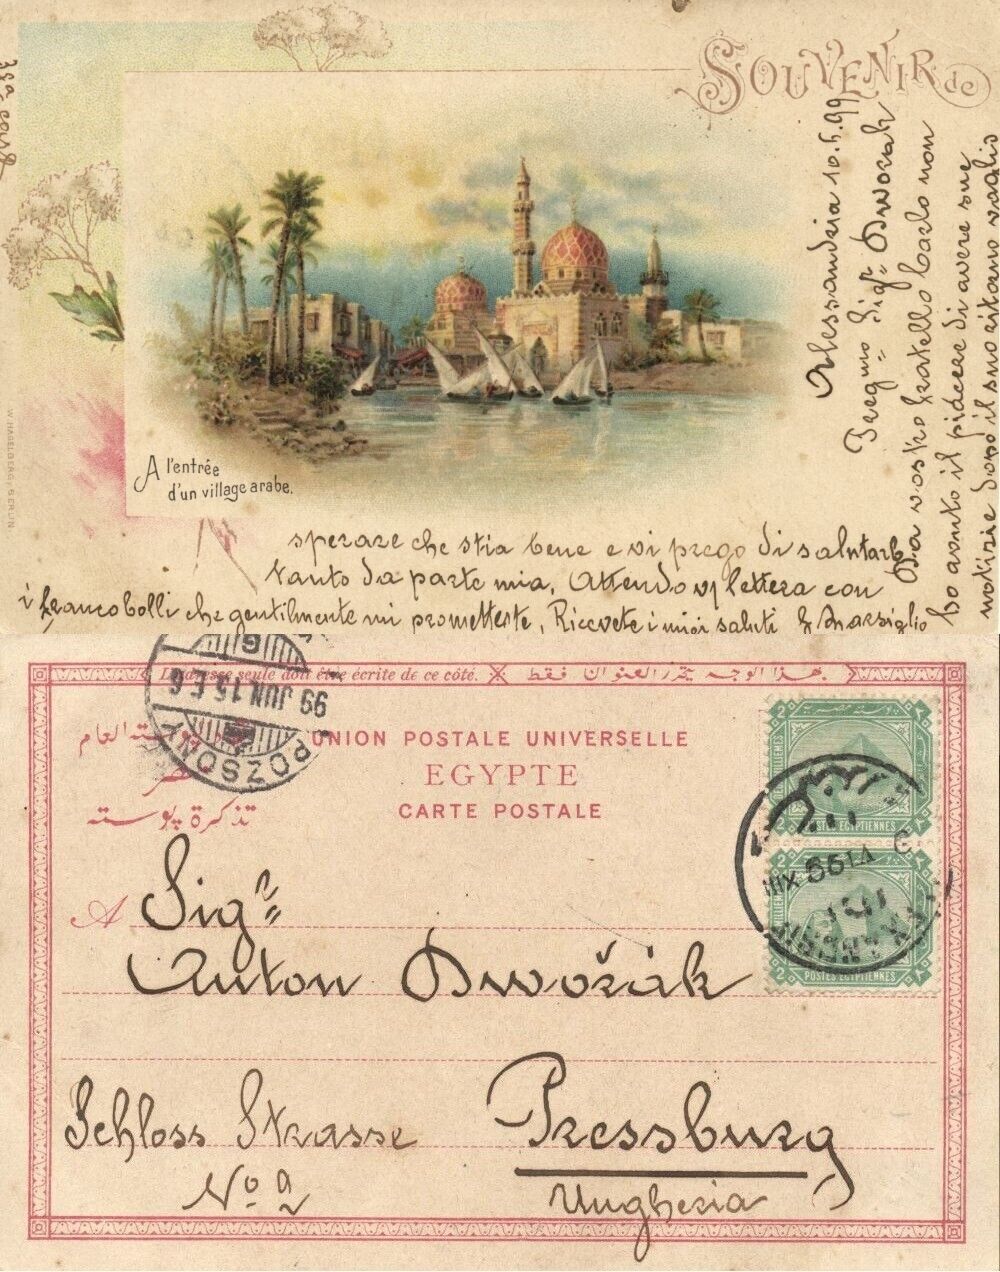 SOUVENIR de
Alessandria 10.6.99
Pregmo Sigr Dworak
Da vostro fratello Carlo non
ho avuto il piacere di avere sue
notizie dopo il suo ritorno voglio
sperare che stia bene e vi prego di salutarlo
tanto da parte mia. Attendo vs lettera con
i francobolli che gentilmente mi prometteste. Ricevete i miei saluti
A l'entrée
d'un village arabe.
W. HAGELBERG, BERLIN
L'adresse seule doit être écrite de ce côté.
هذا الوجه يتحرر العنوان فقط
UNION POSTALE UNIVERSELLE
EGYPTE
CARTE POSTALE
العام
مصر
تذكرة پوسته
POZSONY
99 JUN. 15
2 MILLIEMES
POSTES EGYPTIENNES
2
POSTES EGYPTIENNES
A Sigr
Anton Dwořák
Schloss Strasse
No 2
Pressburg
Ungheria